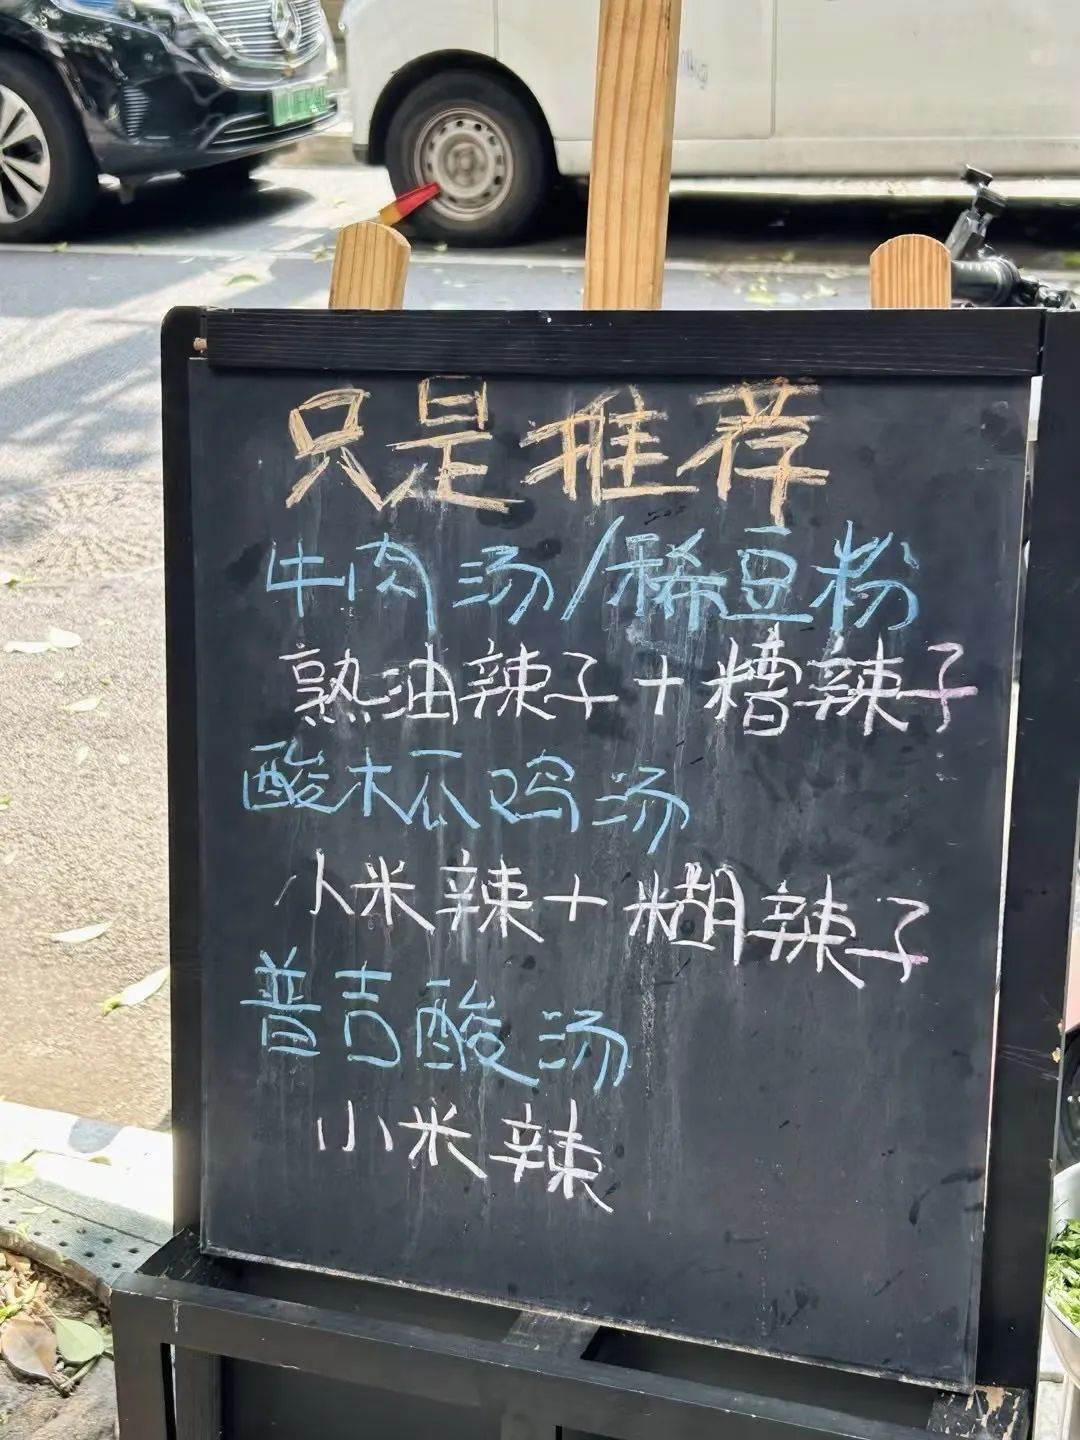 只是推荐
牛肉汤/稀豆粉
熟油辣子+糟辣子
酸木瓜鸡汤
小米辣+糊辣子
普吉酸汤
小米辣